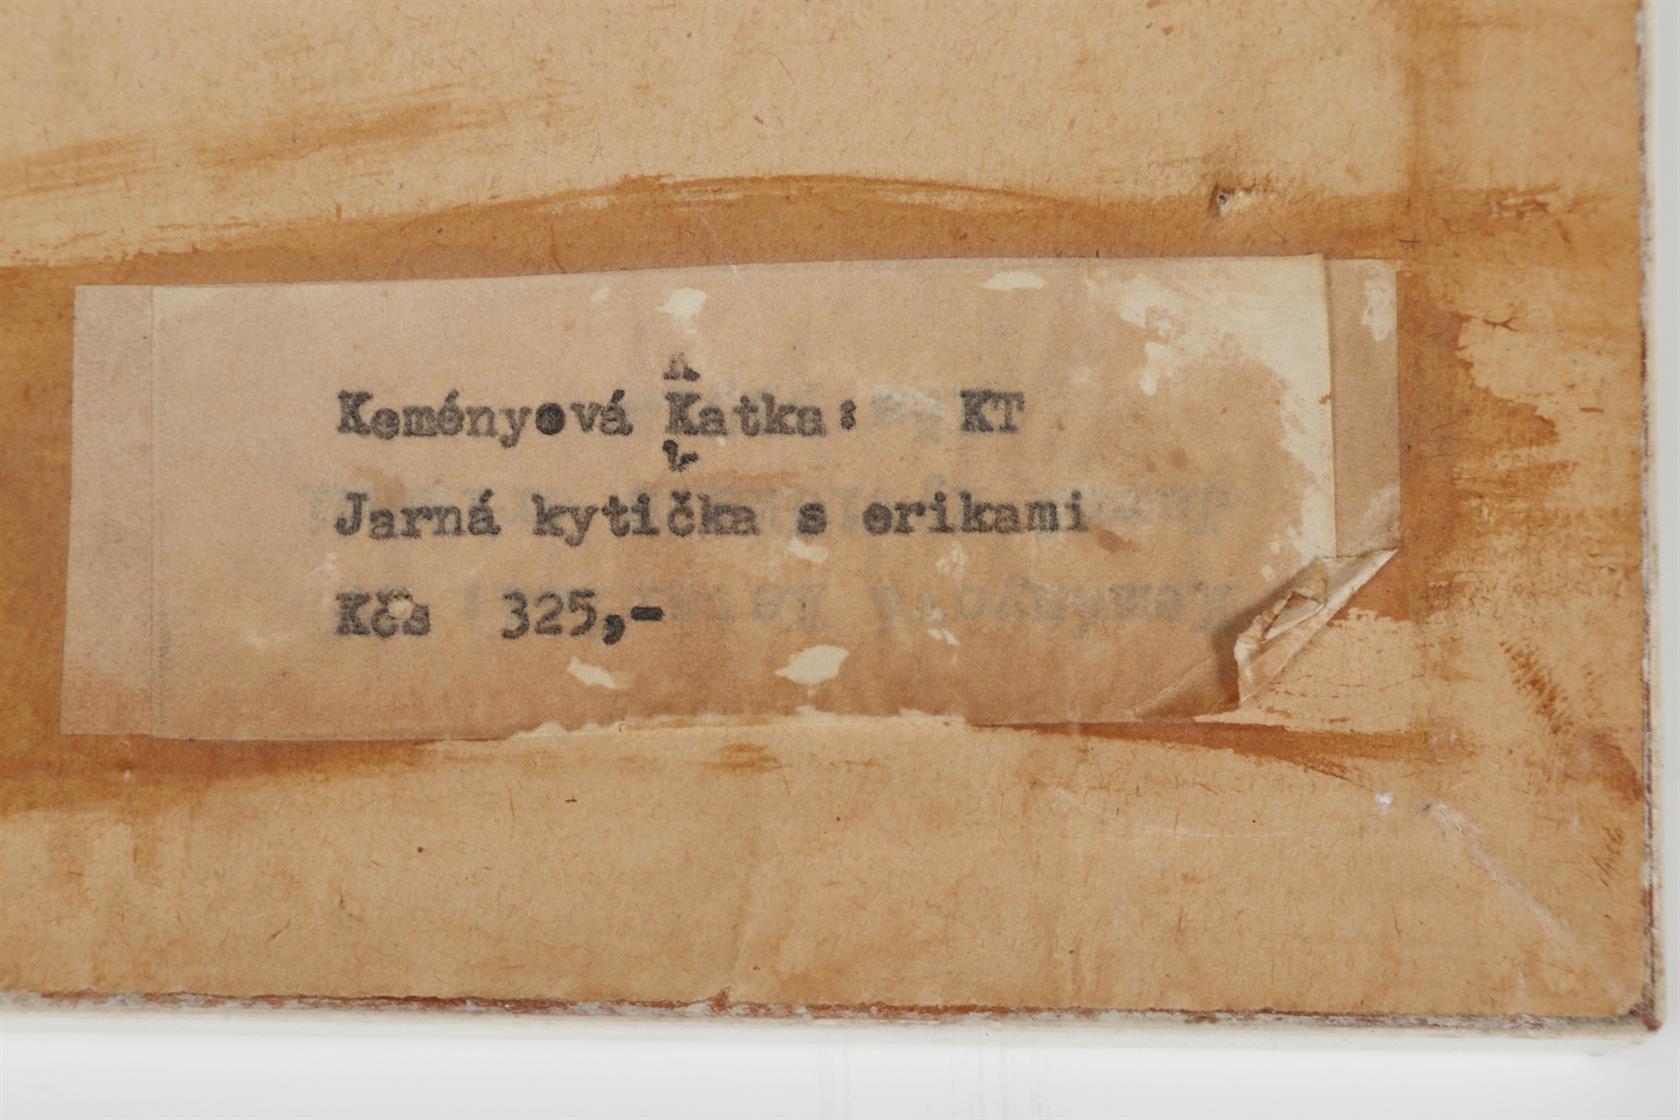 Keményová Katka: KT
Jarná kytička s erikami
Kčs 325,-